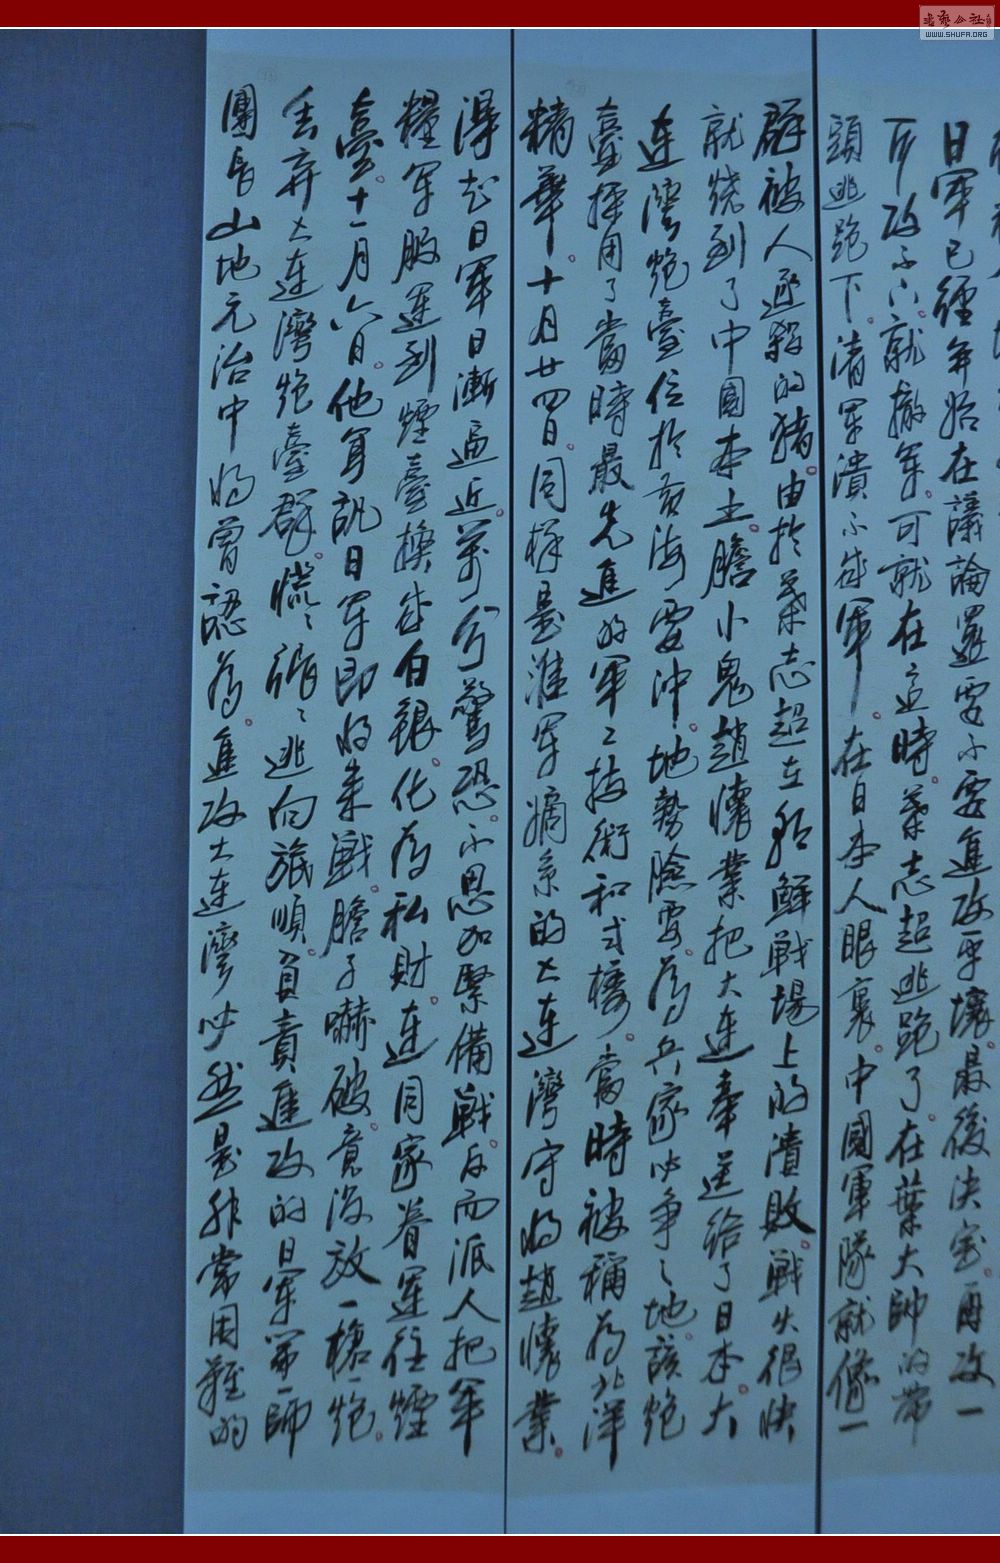 日軍已經開始在議論還要不要進攻平壤最後決定再攻一
下攻不下就撤軍可就在這時葉志超逃跑了在葉大帥的帶
頭逃跑下清軍潰不成軍在日本人眼裏中國軍隊就像一
群被人追殺的猪由於葉志超在朝鮮戰場上的潰敗戰火很快
就燒到了中國本土膽小鬼趙懷業把大連奉送給了日本大
連灣炮臺位於黃海要沖地勢險要為兵家必爭之地該炮
臺採用了當時最先進的軍事技術和武器當時被稱為北洋
精華十月廿四日同樣是淮軍嫡系的大連灣守將趙懷業
得知日軍日漸逼近萬分驚恐不思加緊備戰反而派人把軍
糧軍服運到煙臺換成白銀化為私財連同家眷運往煙
臺十一月六日他耳聞日軍即將來戰膽子嚇破竟沒放一槍一炮
丟弃大連灣炮臺群慌慌張張逃向旅順負責進攻的日軍第一師
團長山地元治中將曾認為進攻大連灣必然是非常困難的
書藝公社
WWW.SHUFA.ORG